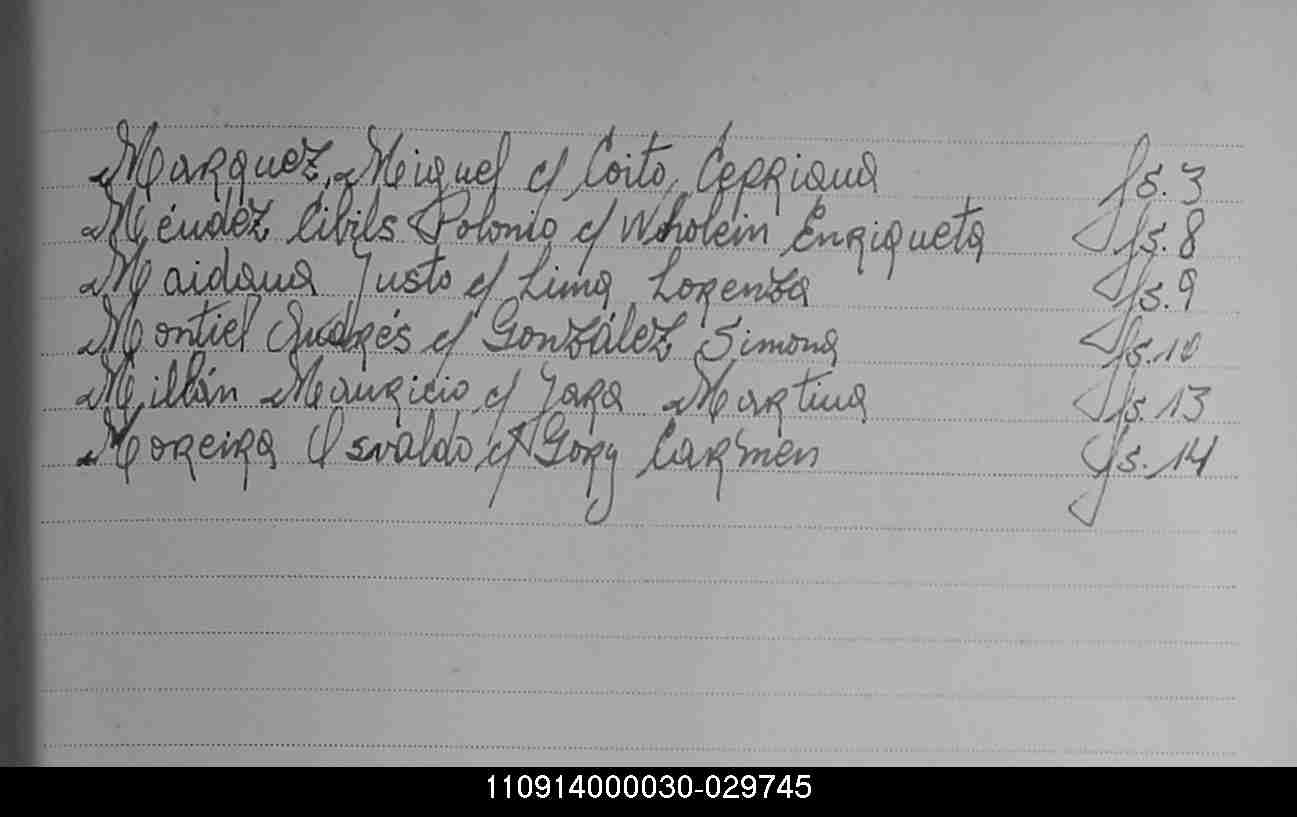 Marquez, Miguel c/ Coito, Cepriana fs. 3
Méndez Cibils Polonio c/ Wholein Enriqueta fs. 8
Maidana Justo c/ Lima Lorenza fs. 9
Montiel Andrés c/ González Simona fs. 10
Millán Mauricio c/ Jara Martina fs. 13
Moreira Osvaldo c/ Gory Carmen fs. 14
110914000030-029745